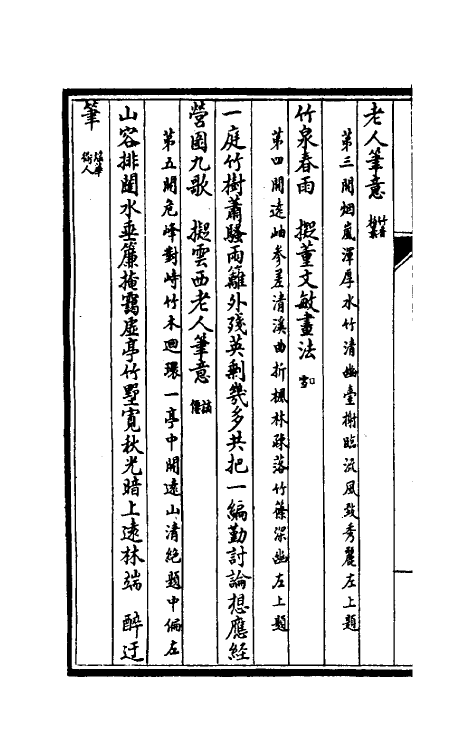 老人筆意
第三開烟嵐渾厚水竹清幽臺榭臨流風致秀麗左上題
竹泉春雨　擬董文敏畫法
第四開遠岫參差清溪曲折楓林疎落竹篠深幽左上題
一庭竹樹蕭騷雨籬外殘英剩幾多共把一編勤討論想應經
營圖九歌　擬雲西老人筆意
第五開危峰對峙竹木迴環一亭中開遠山清絶題中偏左
山容排闥水垂簾掩靄虛亭竹墅寬秋光暗上遠林端　醉迂
筆